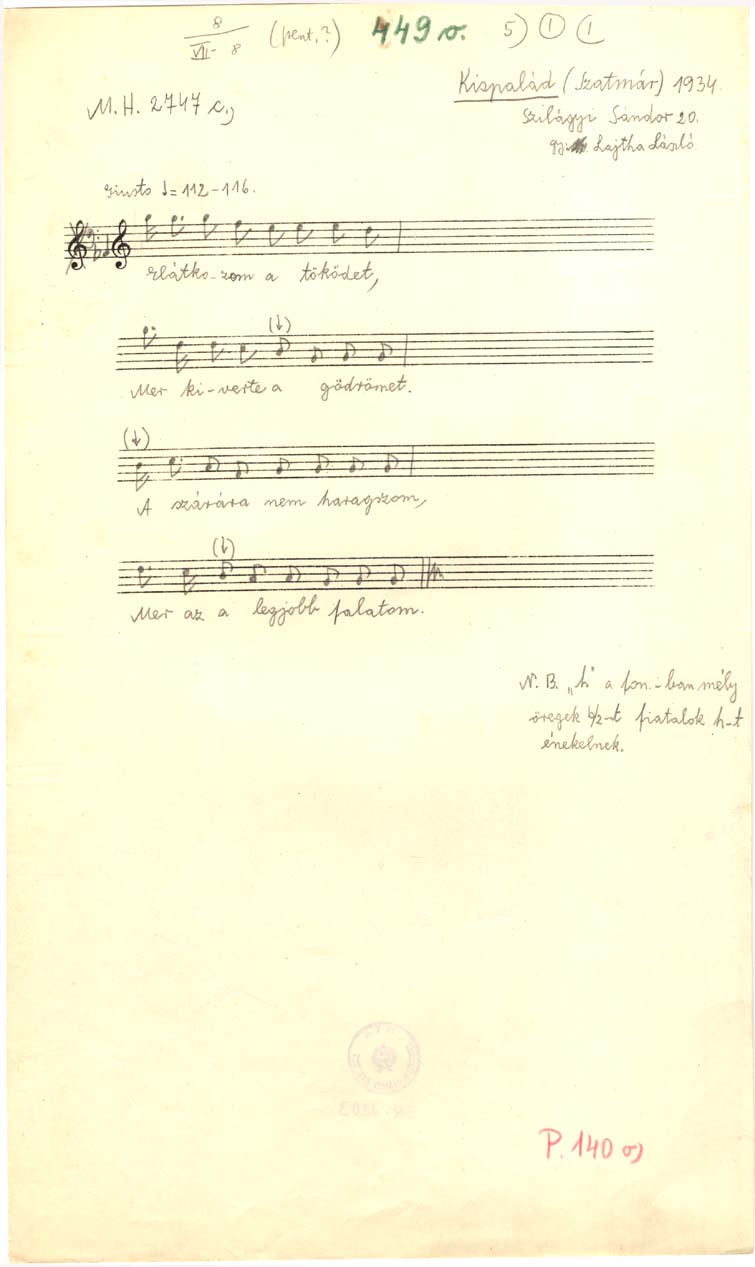 8
VII- 8 (pent.?) 449 o. 5) 1 1
Kispalád (Szatmár) 1934.
M.H. 2747 c.,
Szilágyi Sándor 20.
gy. Lajtha László
Giusto ♩= 112-116.
Elátko-zom a töködet,
(↓)
Mer ki-verte a gödrömet.
(↓)
A szárára nem haragszom,
(↓)
Mer az a legjobb falatom.
N.B. „h" a fon.-ban mély
öregek b/2-t fiatalok h-t
énekelnek.
P. 140 o)